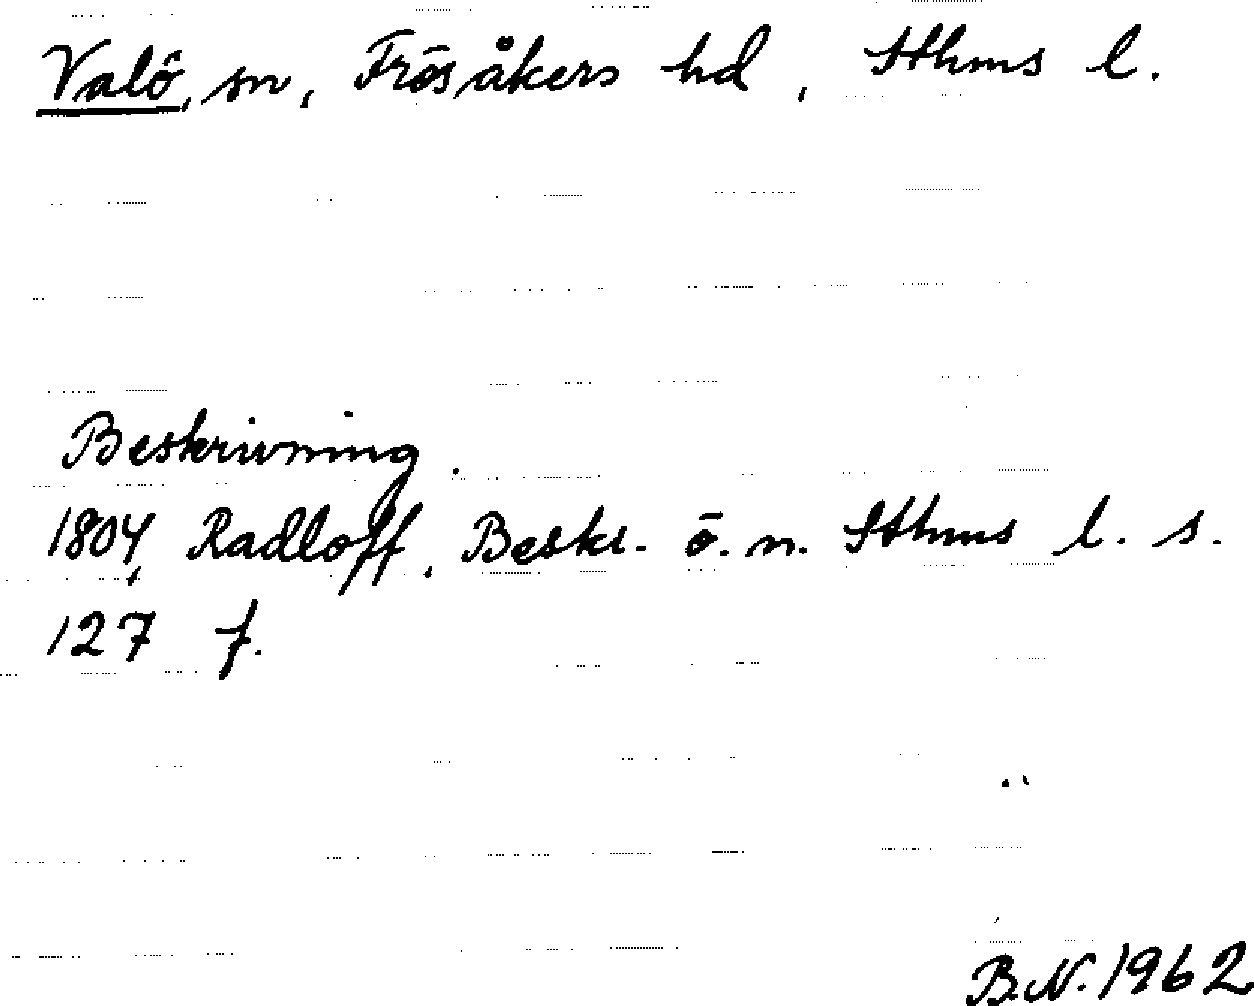 Valö, sn, Frösåkers hd, Sthms l.
Beskrivning.
1804, Radloff, Beskr. ö. n. Sthms l. s.
127 f.
B.N. 1962